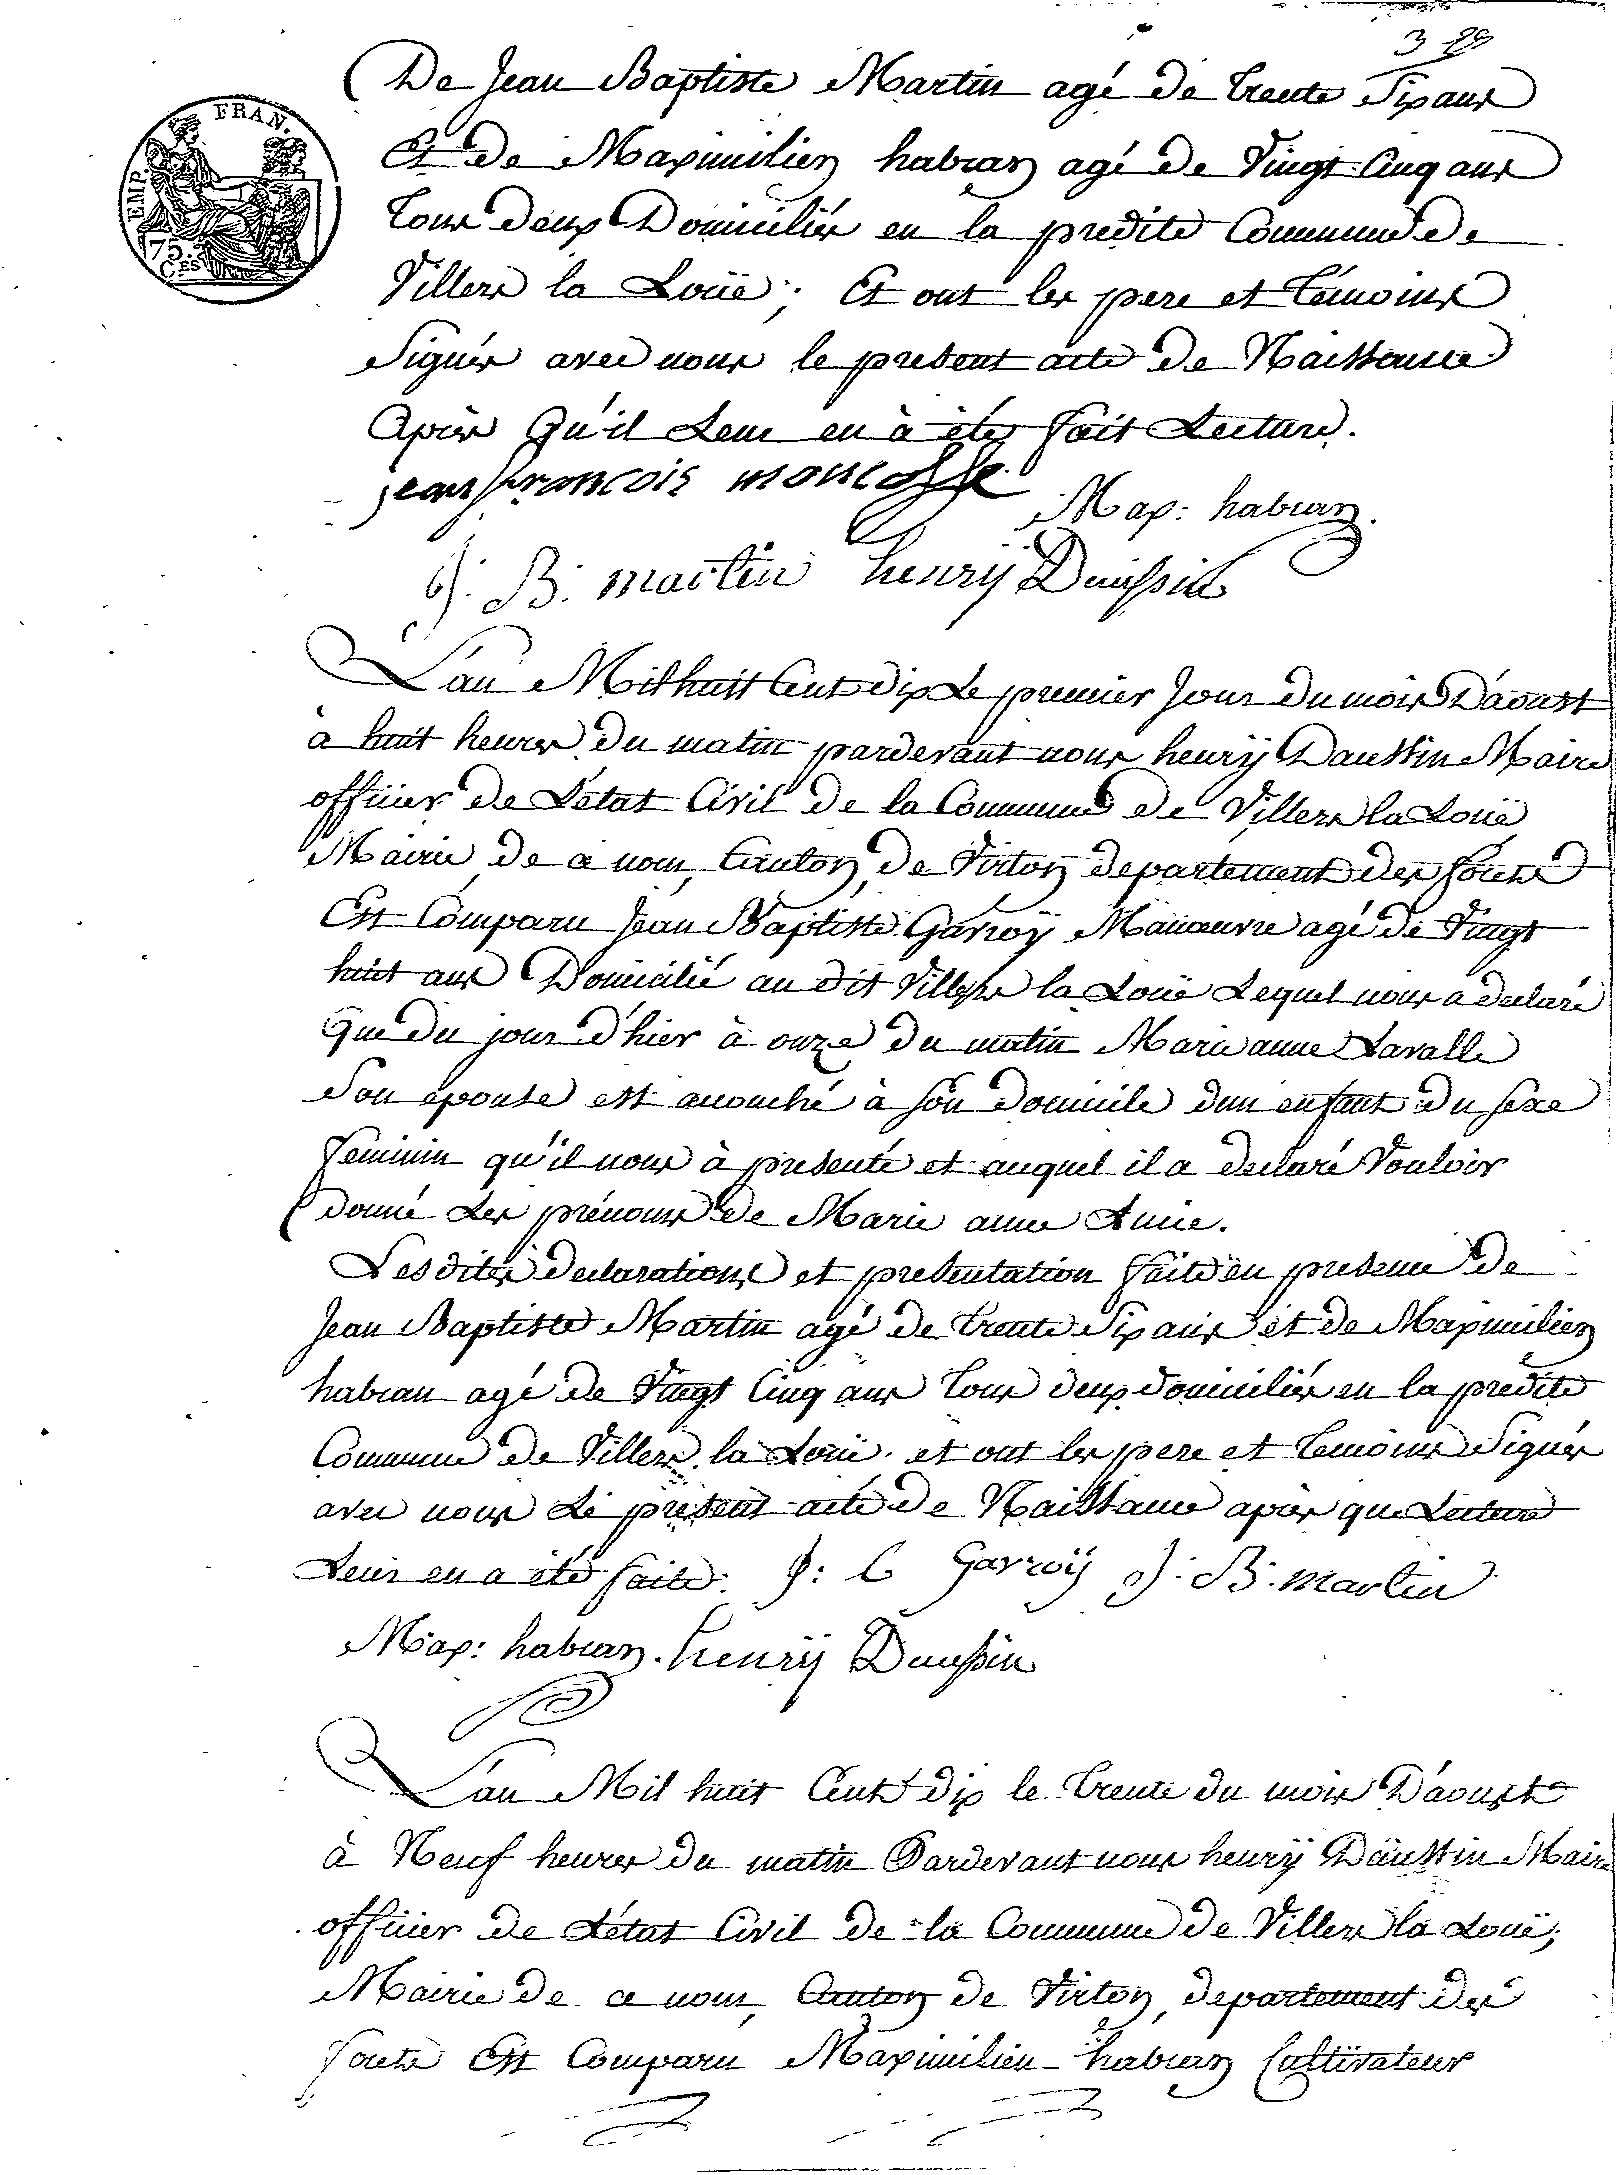 3
De Jean Baptiste Martin agé de trente Six ans
Et de Maximilien habran agé de Vingt Cinq ans
FRAN.
EMP.
75.
CES
Tous deux Domiciliés en la predite Commune de
Villers la Loüe ; Et ont les pere et témoins
Signés avec nous le present acte de Naissance
Après Qu'il Leur en à été fait Lecture.
jean françois moncousse
Max: habran.
J: B: martin henry Daussin
L'an Mil huit Cent dix Le premier Jour du mois D'áoust
à huit heures du matin pardevant nous henrÿ Daussin Maire
officier de L'état Civil de la Commune de Villers la Loüe
Mairie de ce nom, Canton de Virton departement des forets
Est Comparu Jean Baptiste Garroÿ Manœuvre agé de Vingt
huit ans Domicilié au dit Villers la Loüe Lequel nous a declaré
Que du jour d'hier à onze du matin Marie anne Lavalle
Son épouse est acouché à son Domicile d'un enfant du sexe
feminin qu'il nous à presenté et auquel il a declaré Vouloir
donné Les prénoms de Marie anne Lucie.
Les dites declarations et presentation faite en presence de
Jean Baptiste Martin agé de trente Six ans et de Maximilien
habran agé de Vingt Cinq ans tous deux domiciliés en la predite
Commune de Villers la Loüe. et ont les pere et temoins Signés
avec nous Le present acte de Naissance après que Lecture
Leur en a été faite. J: B Garroÿ J: B: martin
Max: habran. henrÿ Daussin
L'an Mil huit Cent dix le trente du mois D'áoust
à Neuf heures du matin Pardevant nous henrÿ Daussin Maire
officier de L'état Civil de la Commune de Villers la Loüe;
Mairie de ce nom, Canton de Virton, departement des
forets Est Comparu Maximilien habran Cultivateur